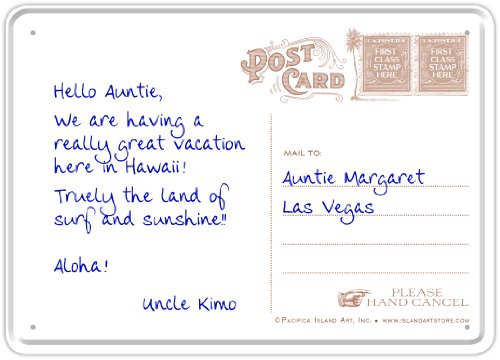 Hello Auntie,
We are having a
really great vacation
here in Hawaii!
Truely the land of
surf and sunshine!!
Aloha!
Uncle Kimo
POST CARD
U.S. POSTAGE
FIRST
CLASS
STAMP
HERE
U.S. POSTAGE
FIRST
CLASS
STAMP
HERE
MAIL TO:
Auntie Margaret
Las Vegas
PLEASE
HAND CANCEL
© PACIFICA ISLAND ART, INC. • WWW.ISLANDARTSTORE.COM